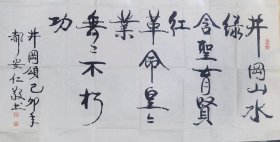 井冈山水
绿
含圣育贤
红
革命皇〻
业
无〻不朽
功
井冈颂己卯年
郝安仁敬书